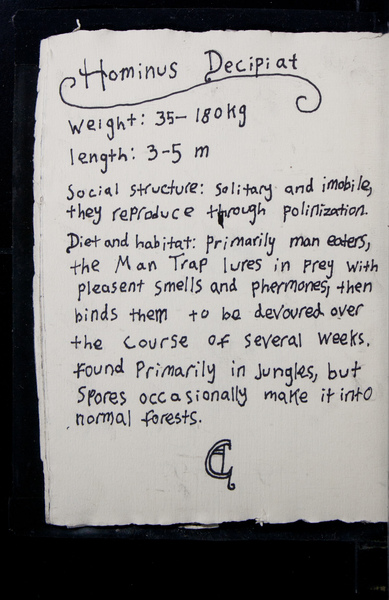 Hominus Decipiat
Weight: 35-180kg
length: 3-5 m
Social structure: Solitary and imobile,
they reproduce through polinization.
Diet and habitat: Primarily man eaters,
the Man Trap lures in prey with
pleasent smells and phermones, then
binds them to be devoured over
the course of several weeks.
Found Primarily in jungles, but
Spores occasionally make it into
normal forests.